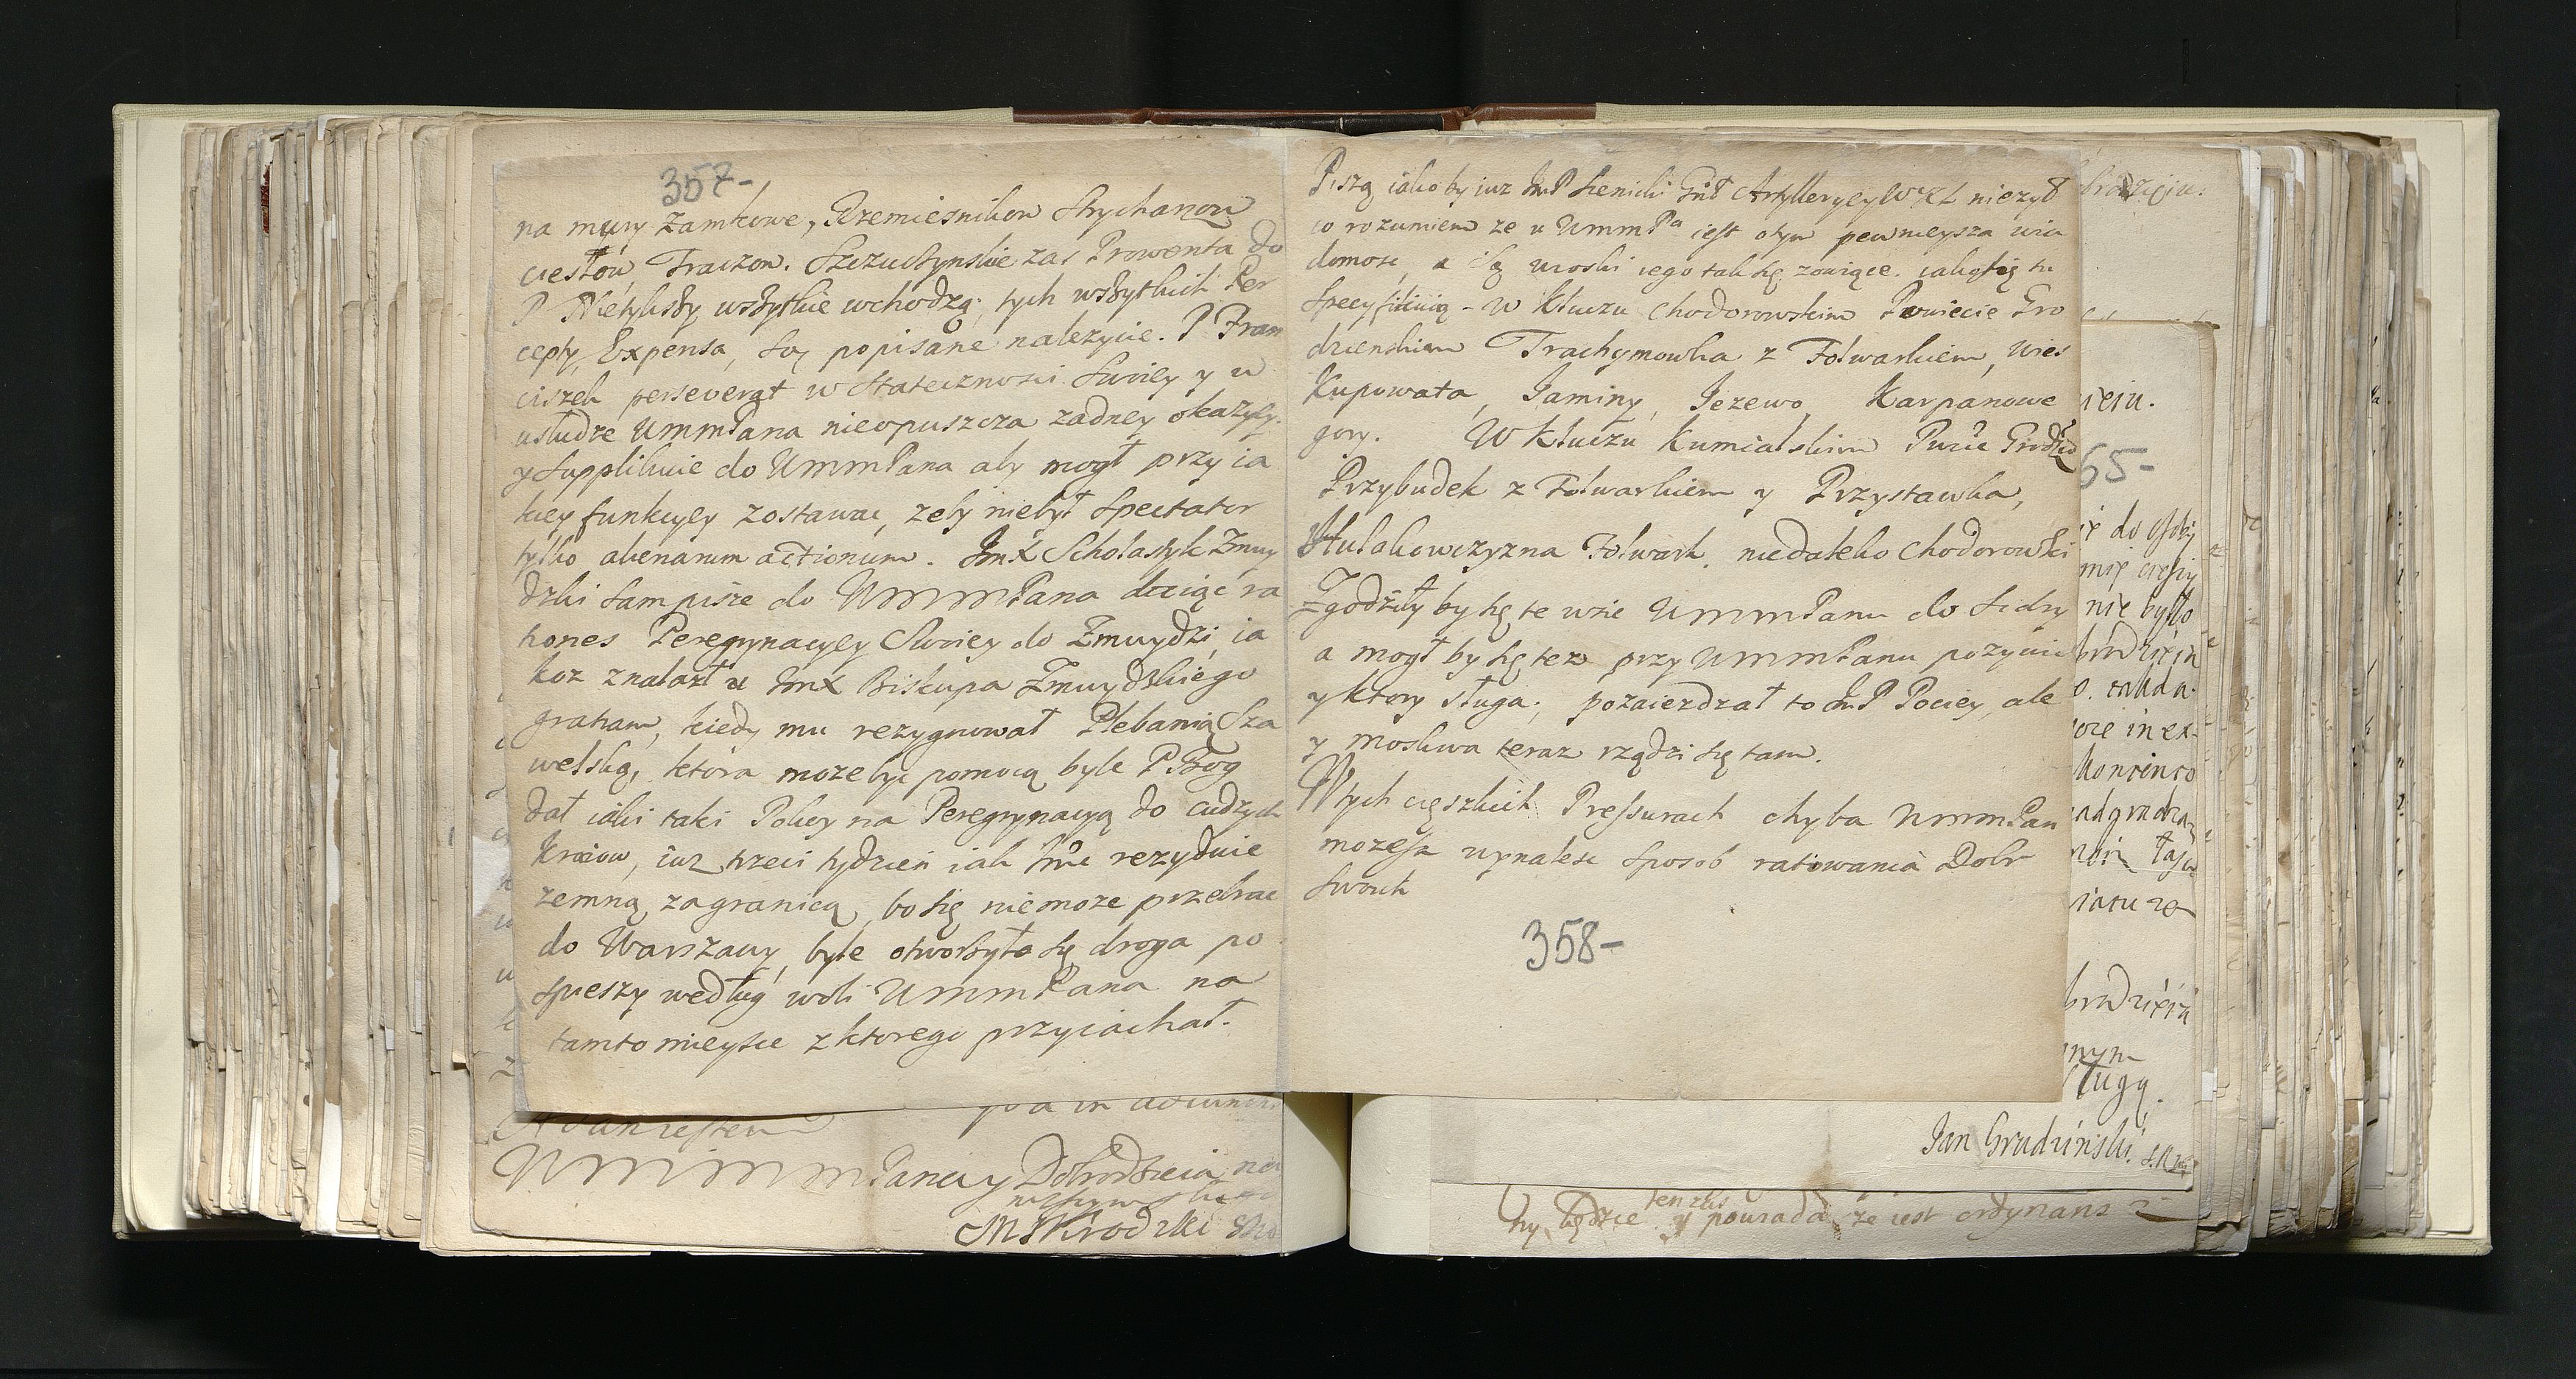 357-
na mury zamkowe, Rzemiesnikow Strycharzow
ciesłow, Traczow. Szczuczynskie zas Prowenta do
P Nietykszy wszytkie wchodzą, tych wszytkich Per
cepty, Expensa, są popisane nalezycie. P Fran
ciszek perseverat w Statecznosci Swoiey y w
usłudze UmmPana nieopuszcza zadney okazyey.
y Supplikuie do UmmPana aby mogł przy ia
kiey funkcyey zostawac, zeby niebył Spectator
tylko alienarum actionum. JmX Scholastyk Zmuy
dzki sam pisze do UmmmPana daiąc ra
tiones Peregrynacyey Swoiey do Zmuydzi, ia
koz znalazł u JmX Biskupa Zmuydzkiego
gratiam, kiedy mu rezygnował Plebanią Sza
welską, ktora moze byc pomocą byle P Bog
dał iaki taki Pokoy na Peregrynacyą do cudzych
Kraiow, iuz trzeci tydzień iak rezyduie
zemną zagranicą, bo się niemoze przebrac
do Warszawy, byle otworzyła się droga po
spieszy według woli UmmPana na
tamto mieysce z ktorego przyiachał.
Piszą iakoby iuz JmP Sienicki Gnł Artylleryey WXL niezył
co rozumiem ze u UmmPa iest otym pewnieysza wia
domosc, a są wioski iego tak się zowiące. iako się tu
specyfikuią - w Kluczu Chodorowskim Powiecie Gro
dzienskim Trachymowka z Folwarkiem, wies
Kupowata, Jaminy, Jezewo, Karpanowe
gory. W Kluczu Kumialskim Pwcie Grodz
Przybudek z Folwarkiem y Przystawka,
Hulakowczyzna Folwark. niedaleko Chodorowki
Zgodziły by się te wsie UmmPanu do Sidry
a mogł by się tez przy UmmPanu pozywic
y ktory sługa; pozaiezdzał to JmP Pociey, ale
y moskwa teraz rządzi się tam.
W tych cięszkich Pressurach chyba UmmPan
mozesz wynalesc sposob ratowania Dobr
swoich
358-
UmmmmPana y Dobrodzieia
Jan Grudzinski
ny będzie y powiada ze iest ordynans